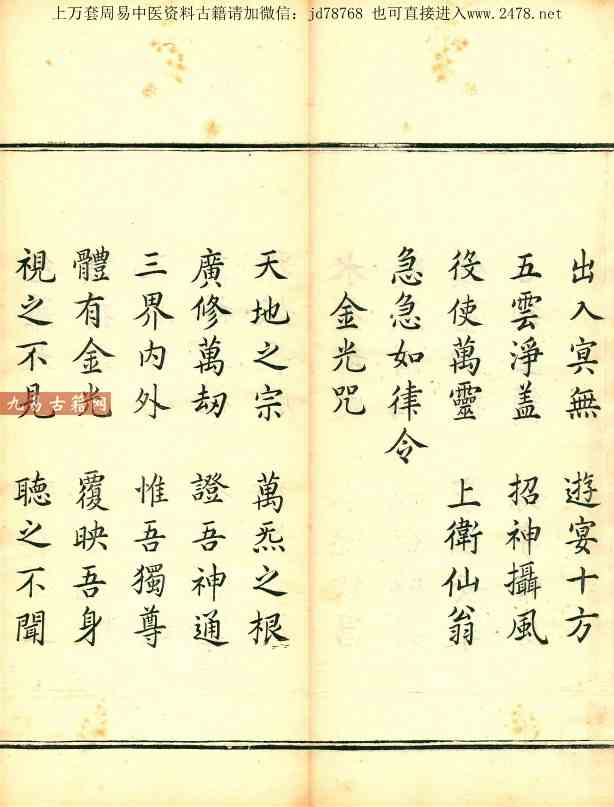 上万套周易中医资料古籍请加微信：jd78768 也可直接进入www.2478.net
出入冥無 遊宴十方
五雲淨盖 招神攝風
役使萬靈 上衛仙翁
急急如律令
金光咒
天地之宗 萬炁之根
廣修萬刧 證吾神通
三界内外 惟吾獨尊
體有金光 覆映吾身
視之不見 聴之不聞
九易古籍网